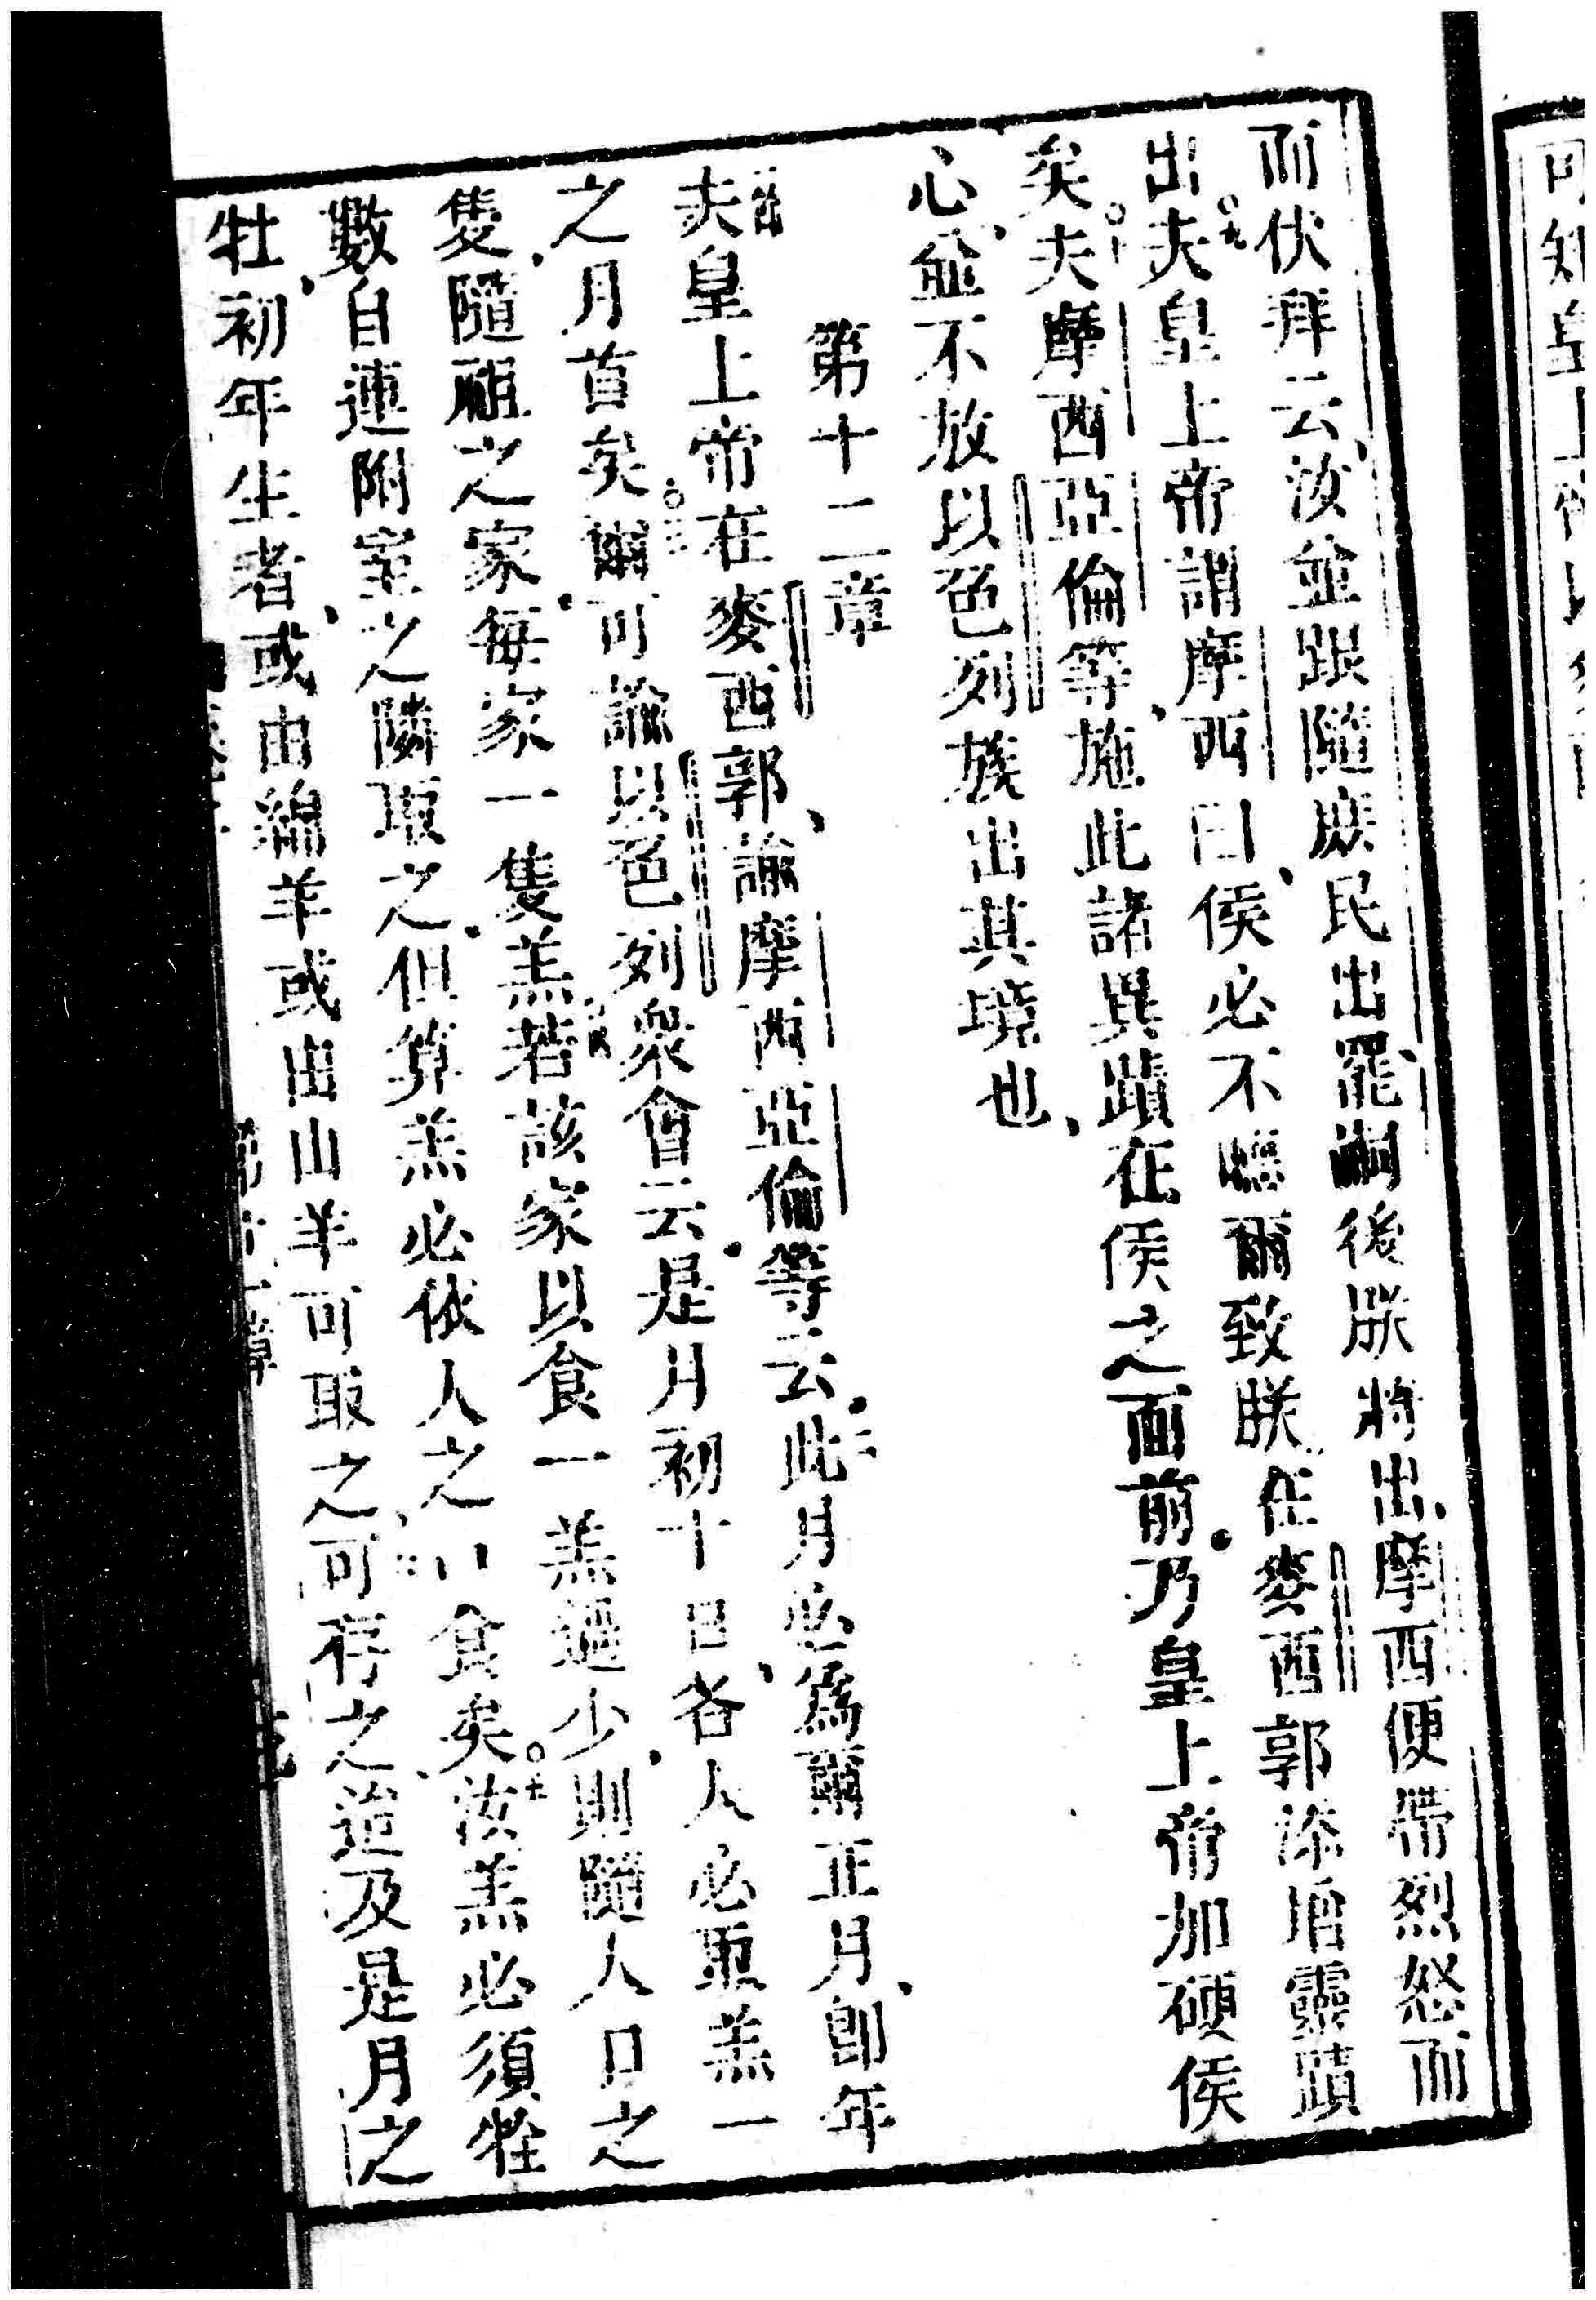 而伏拜云、汝並跟隨庶民出罷、嗣後朕將出、摩西便帶烈怒而
出○夫皇上帝謂摩西曰、侯必不聽爾致朕在麥西郭添增靈蹟
矣○夫摩西亞倫等、施此諸異蹟在侯之面前、乃皇上帝加硬侯
心、並不放以色列族出其境也、
第十二章
夫皇上帝在麥西郭、諭摩西亞倫等云、二此月必為爾正月、即年
之月首矣○三爾可諭以色列眾會云、是月初十日、各人必取羔一
隻、隨祖之家、每家一隻羔、若該家以食一羔過少、則隨人口之
數、自連附室之隣取之、但算羔必依人之口食矣○五汝羔必須牷
牡、初年生者、或由綿羊或由山羊可取之、可存之迨及是月之